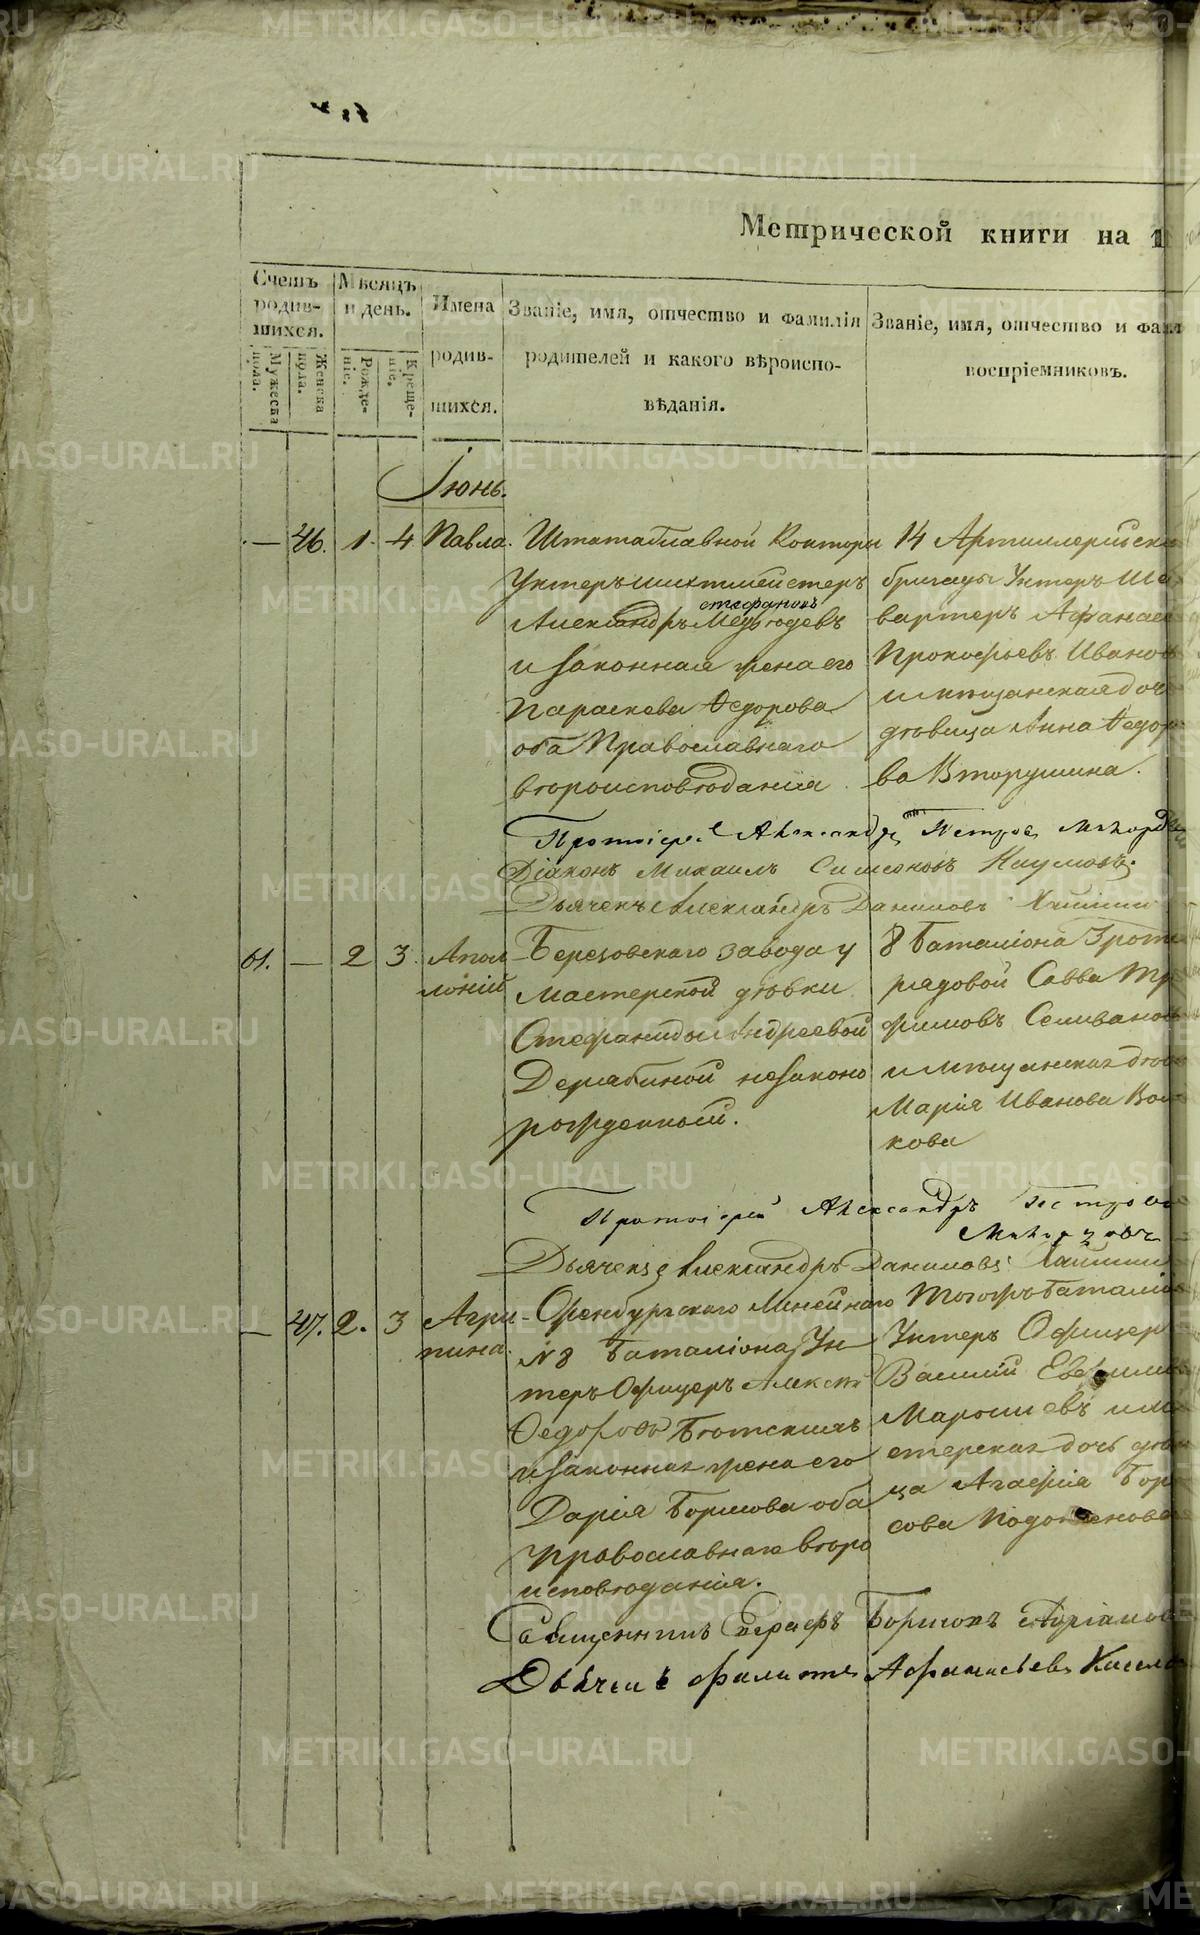 Метрической книги на 1
Счетъ родив-шихся.
Мужеска пола.
Женска пола.
Мѣсяцъ и день.
Рожде-ніе.
Креще-ніе.
Имена родив-шихся.
Званіе, имя, отчество и фамилія родителей и какого вѣроиспо-вѣданія.
Званіе, имя, отчество и фами
воспріемниковъ.
Іюнь.
— 46. 1. 4 Павла.
Штата Главной Конторы
Унтеръ шихтмейстеръ
стефановъ
Александръ Медвѣдевъ
и законная жена его
Параскева Ѳедорова
оба Православнаго
вѣроисповѣданія.
14 Артиллерійска
бригады Унтеръ
вартеръ Афанас
Прокофьевъ Иванов
и мѣщанская доч
дѣвица Анна Ѳедор
ва Вторушина.
Протоіерей Александръ Петровъ
Діаконъ Михаилъ Симеоновъ Наумовъ.
Дьячекъ Александръ Даниловъ
61. — 2 3. Апол
лоній
Березовскаго завода у
мастерской дѣвки
Стефаниды Андреевой
Дерябиной незаконо
рожденный.
8 Баталіона
рядовой Савва
фимовъ Селиванов
и мѣщанская
Марія Иванова
кова
Протоіерей Александръ Петровъ
Дьячекъ Александръ Даниловъ
— 47. 2. 3 Агри
пина.
Оренбургскаго Линейнаго
№8 Баталіона Ун
теръ Офицеръ Алексѣй
Ѳедоровъ
и законная жена его
Дарія Борисова оба
православнаго вѣро
исповѣданія.
Тогожъ Баталіо
Унтеръ Офицер
Василій
и ма
стерская дочь
ца Агафія Бор
сова
Священникъ Борисовъ
Дьячекъ Филиппъ Афанасьевъ
METRIKI.GASO-URAL.RU